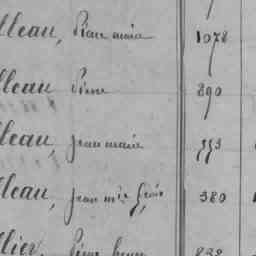 lleau, Pierre marie 1078
lleau Pierre 890
lleau, Jean marie 553
lleau, Jean m.ie Frçois 380
llier, Pierre 838